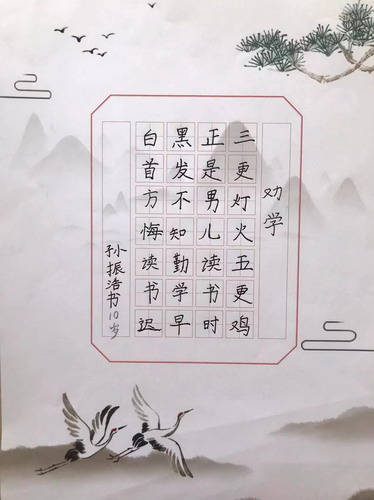 劝学
三更灯火五更鸡
正是男儿读书时
黑发不知勤学早
白首方悔读书迟
孙振浩书10岁